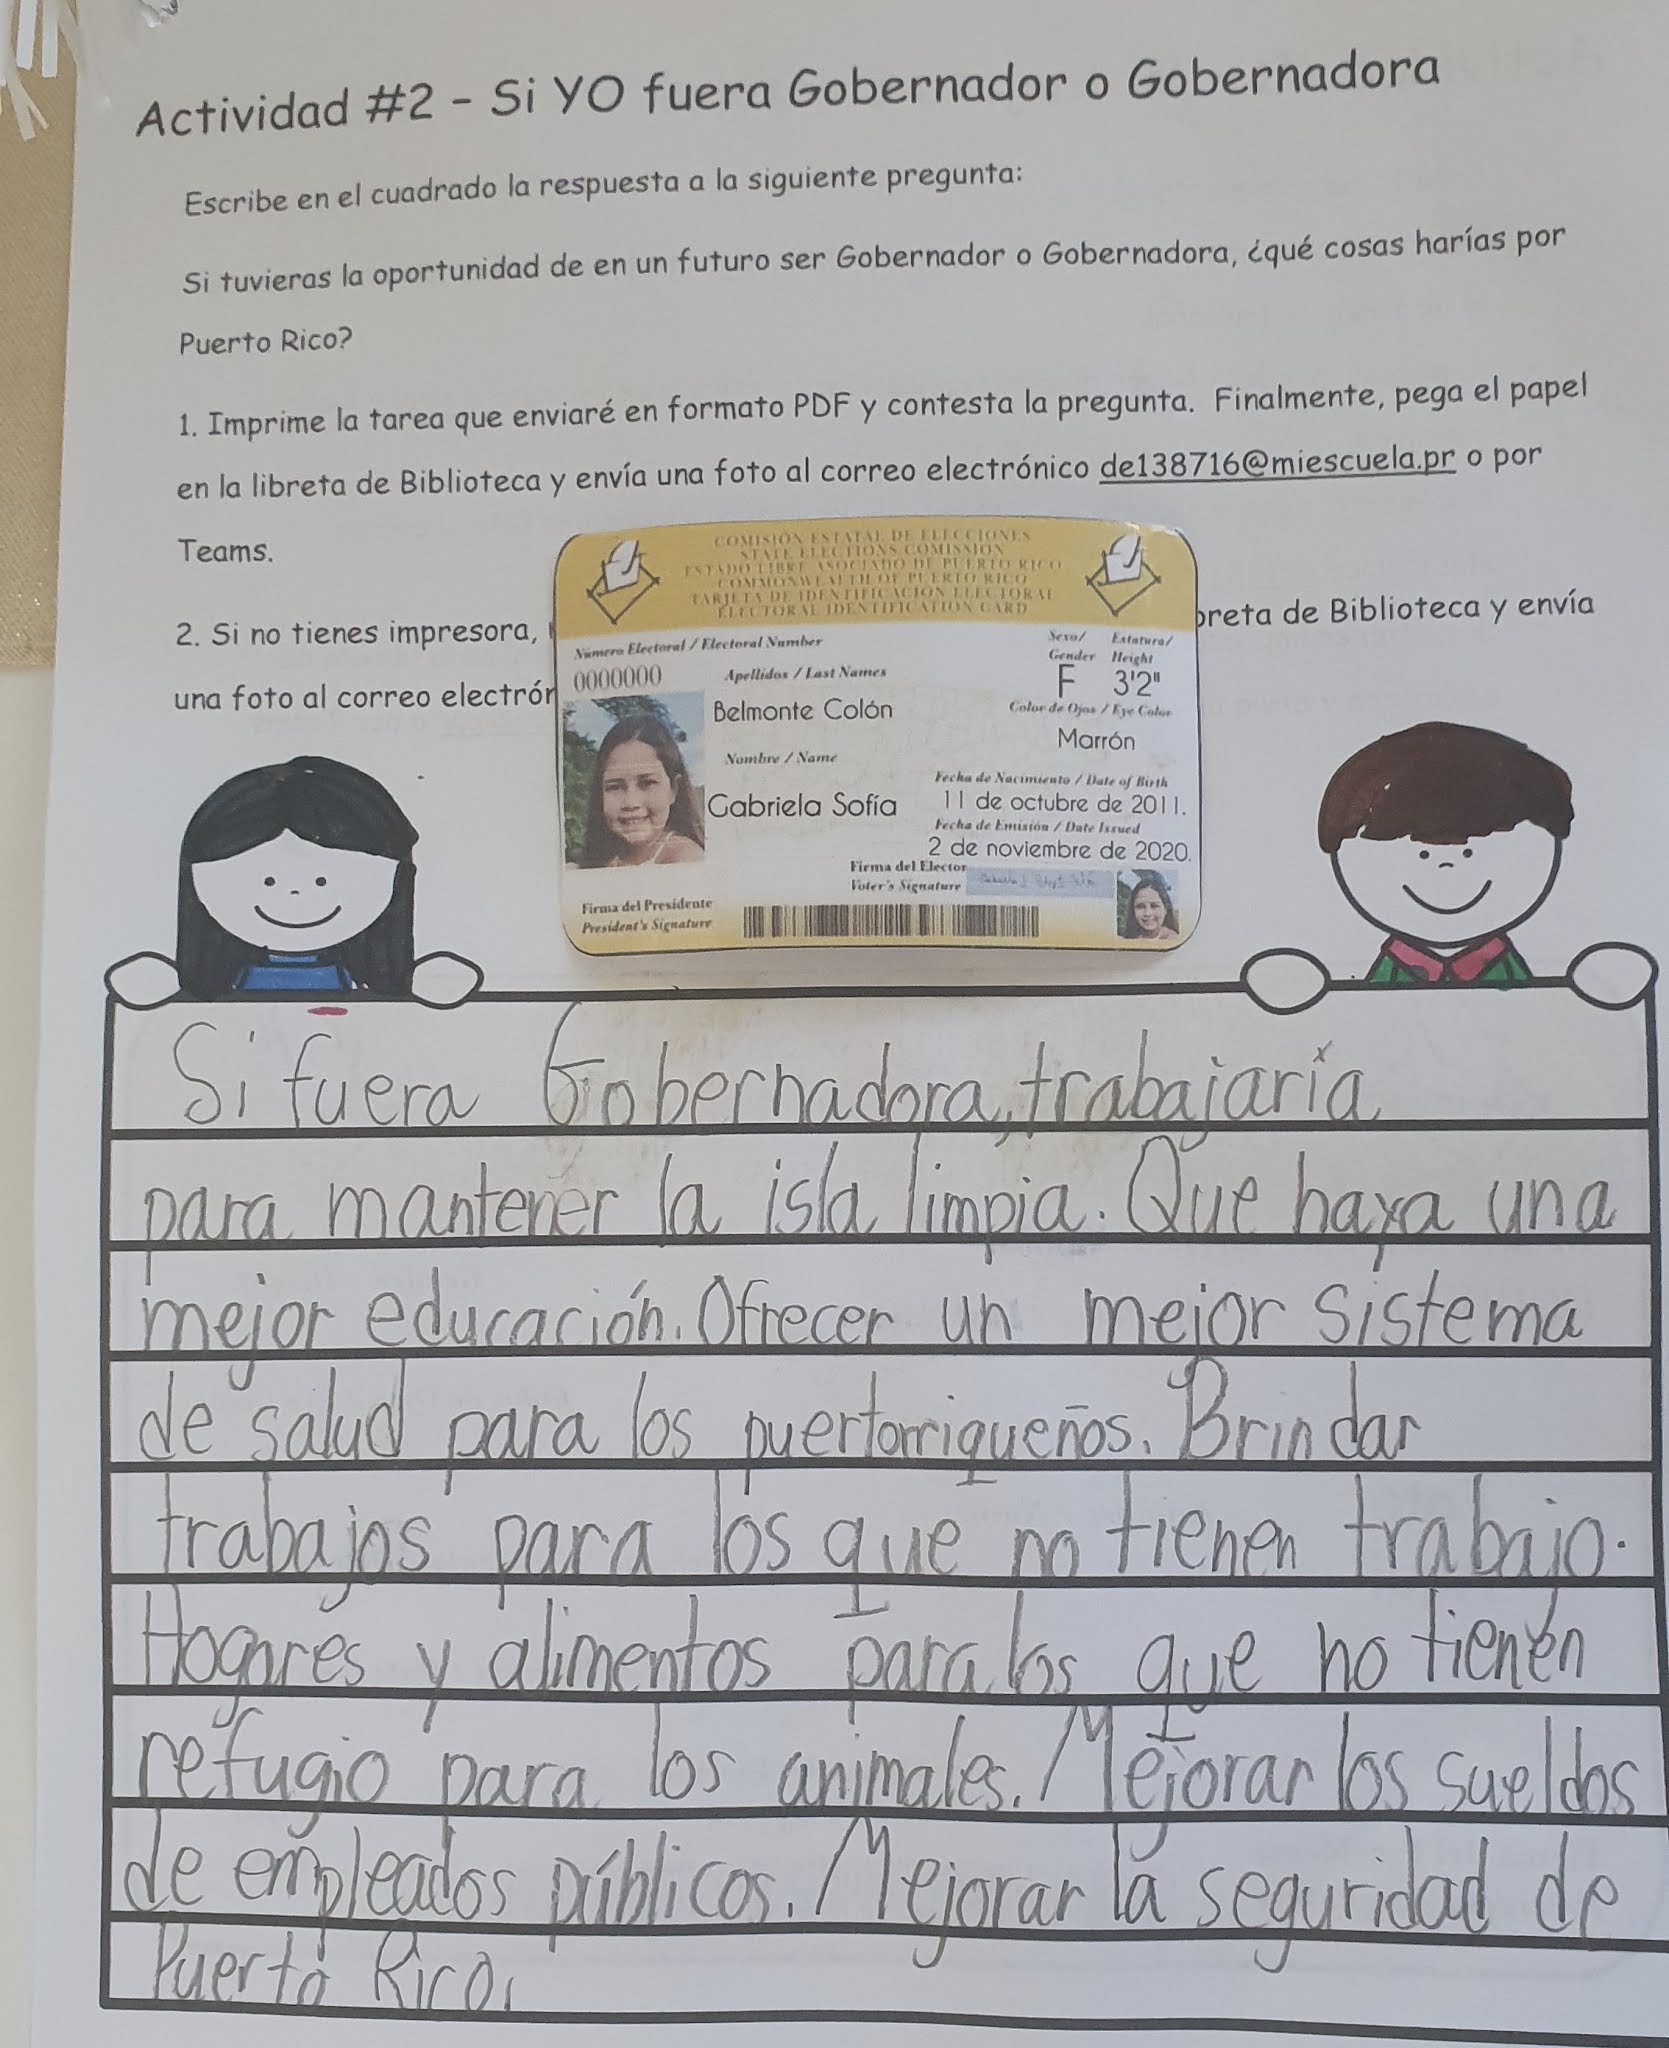 Actividad #2 - Si YO fuera Gobernador o Gobernadora
Escribe en el cuadrado la respuesta a la siguiente pregunta:
Si tuvieras la oportunidad de en un futuro ser Gobernador o Gobernadora, ¿qué cosas harías por
Puerto Rico?
1. Imprime la tarea que enviaré en formato PDF y contesta la pregunta. Finalmente, pega el papel
en la libreta de Biblioteca y envía una foto al correo electrónico de138716@miescuela.pr o por
Teams.
2. Si no tienes impresora,
breta de Biblioteca y envía
una foto al correo electrón
COMISIÓN ESTATAL DE ELECCIONES
STATE ELECTIONS COMISSION
ESTADO LIBRE ASOCIADO DE PUERTO RICO
COMMONWEALTH OF PUERTO RICO
TARJETA DE IDENTIFICACIÓN ELECTORAL
ELECTORAL IDENTIFICATION CARD
Número Electoral / Electoral Number
0000000
Sexo/ Estatura/
Gender Height
F 3'2"
Apellidos / Last Names
Belmonte Colón
Color de Ojos / Eye Color
Marrón
Nombre / Name
Gabriela Sofía
Fecha de Nacimiento / Date of Birth
11 de octubre de 2011.
Fecha de Emisión / Date Issued
2 de noviembre de 2020.
Firma del Elector
Voter's Signature
Firma del Presidente
President's Signature
Si fuera Gobernadora, trabajaría
para mantener la isla limpia. Que haya una
mejor educación. Ofrecer un mejor sistema
de salud para los puertorriqueños. Brindar
trabajos para los que no tienen trabajo.
Hogares y alimentos para los que no tienen
refugio para los animales. Mejorar los sueldos
de empleados públicos. Mejorar la seguridad de
Puerto Rico.